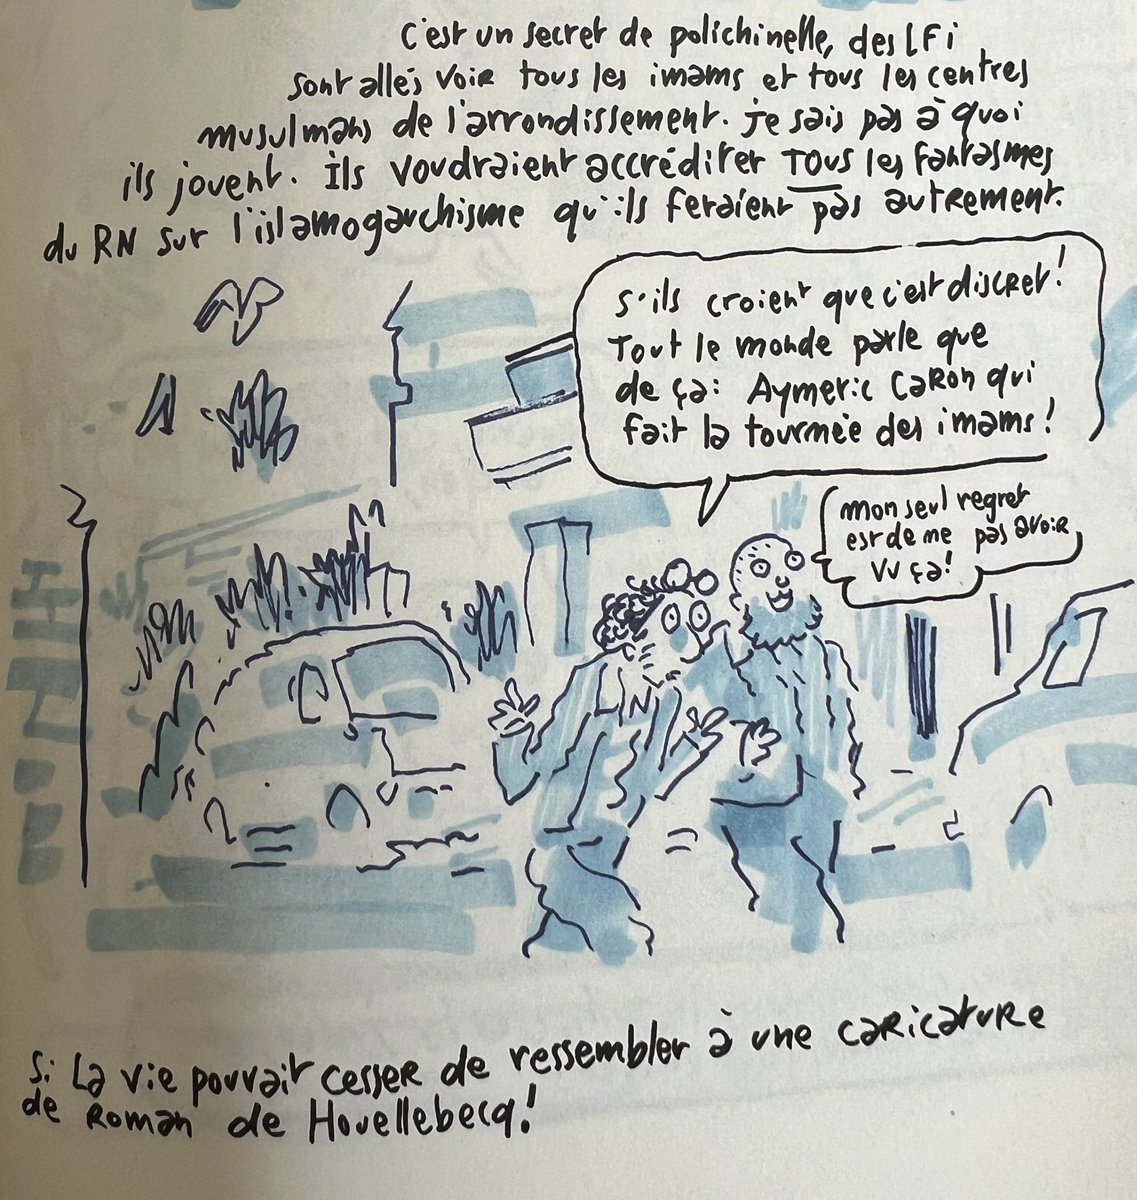 C'est un secret de polichinelle, des LFi
sont allés voir tous les imams et tous les centres
musulmans de l'arrondissement. je sais pas à quoi
ils jouent. ils voudraient accréditer TOUS les fantasmes
du RN sur l'islamogauchisme qu'ils feraient pas autrement.
S'ils croient que c'est discret!
Tout le monde parle que
de ça: Aymeric Caron qui
fait la tournée des imams!
mon seul regret
est de ne pas avoir
vu ça!
Si La vie pouvait cesser de ressembler à une caricature
de roman de Houellebecq!